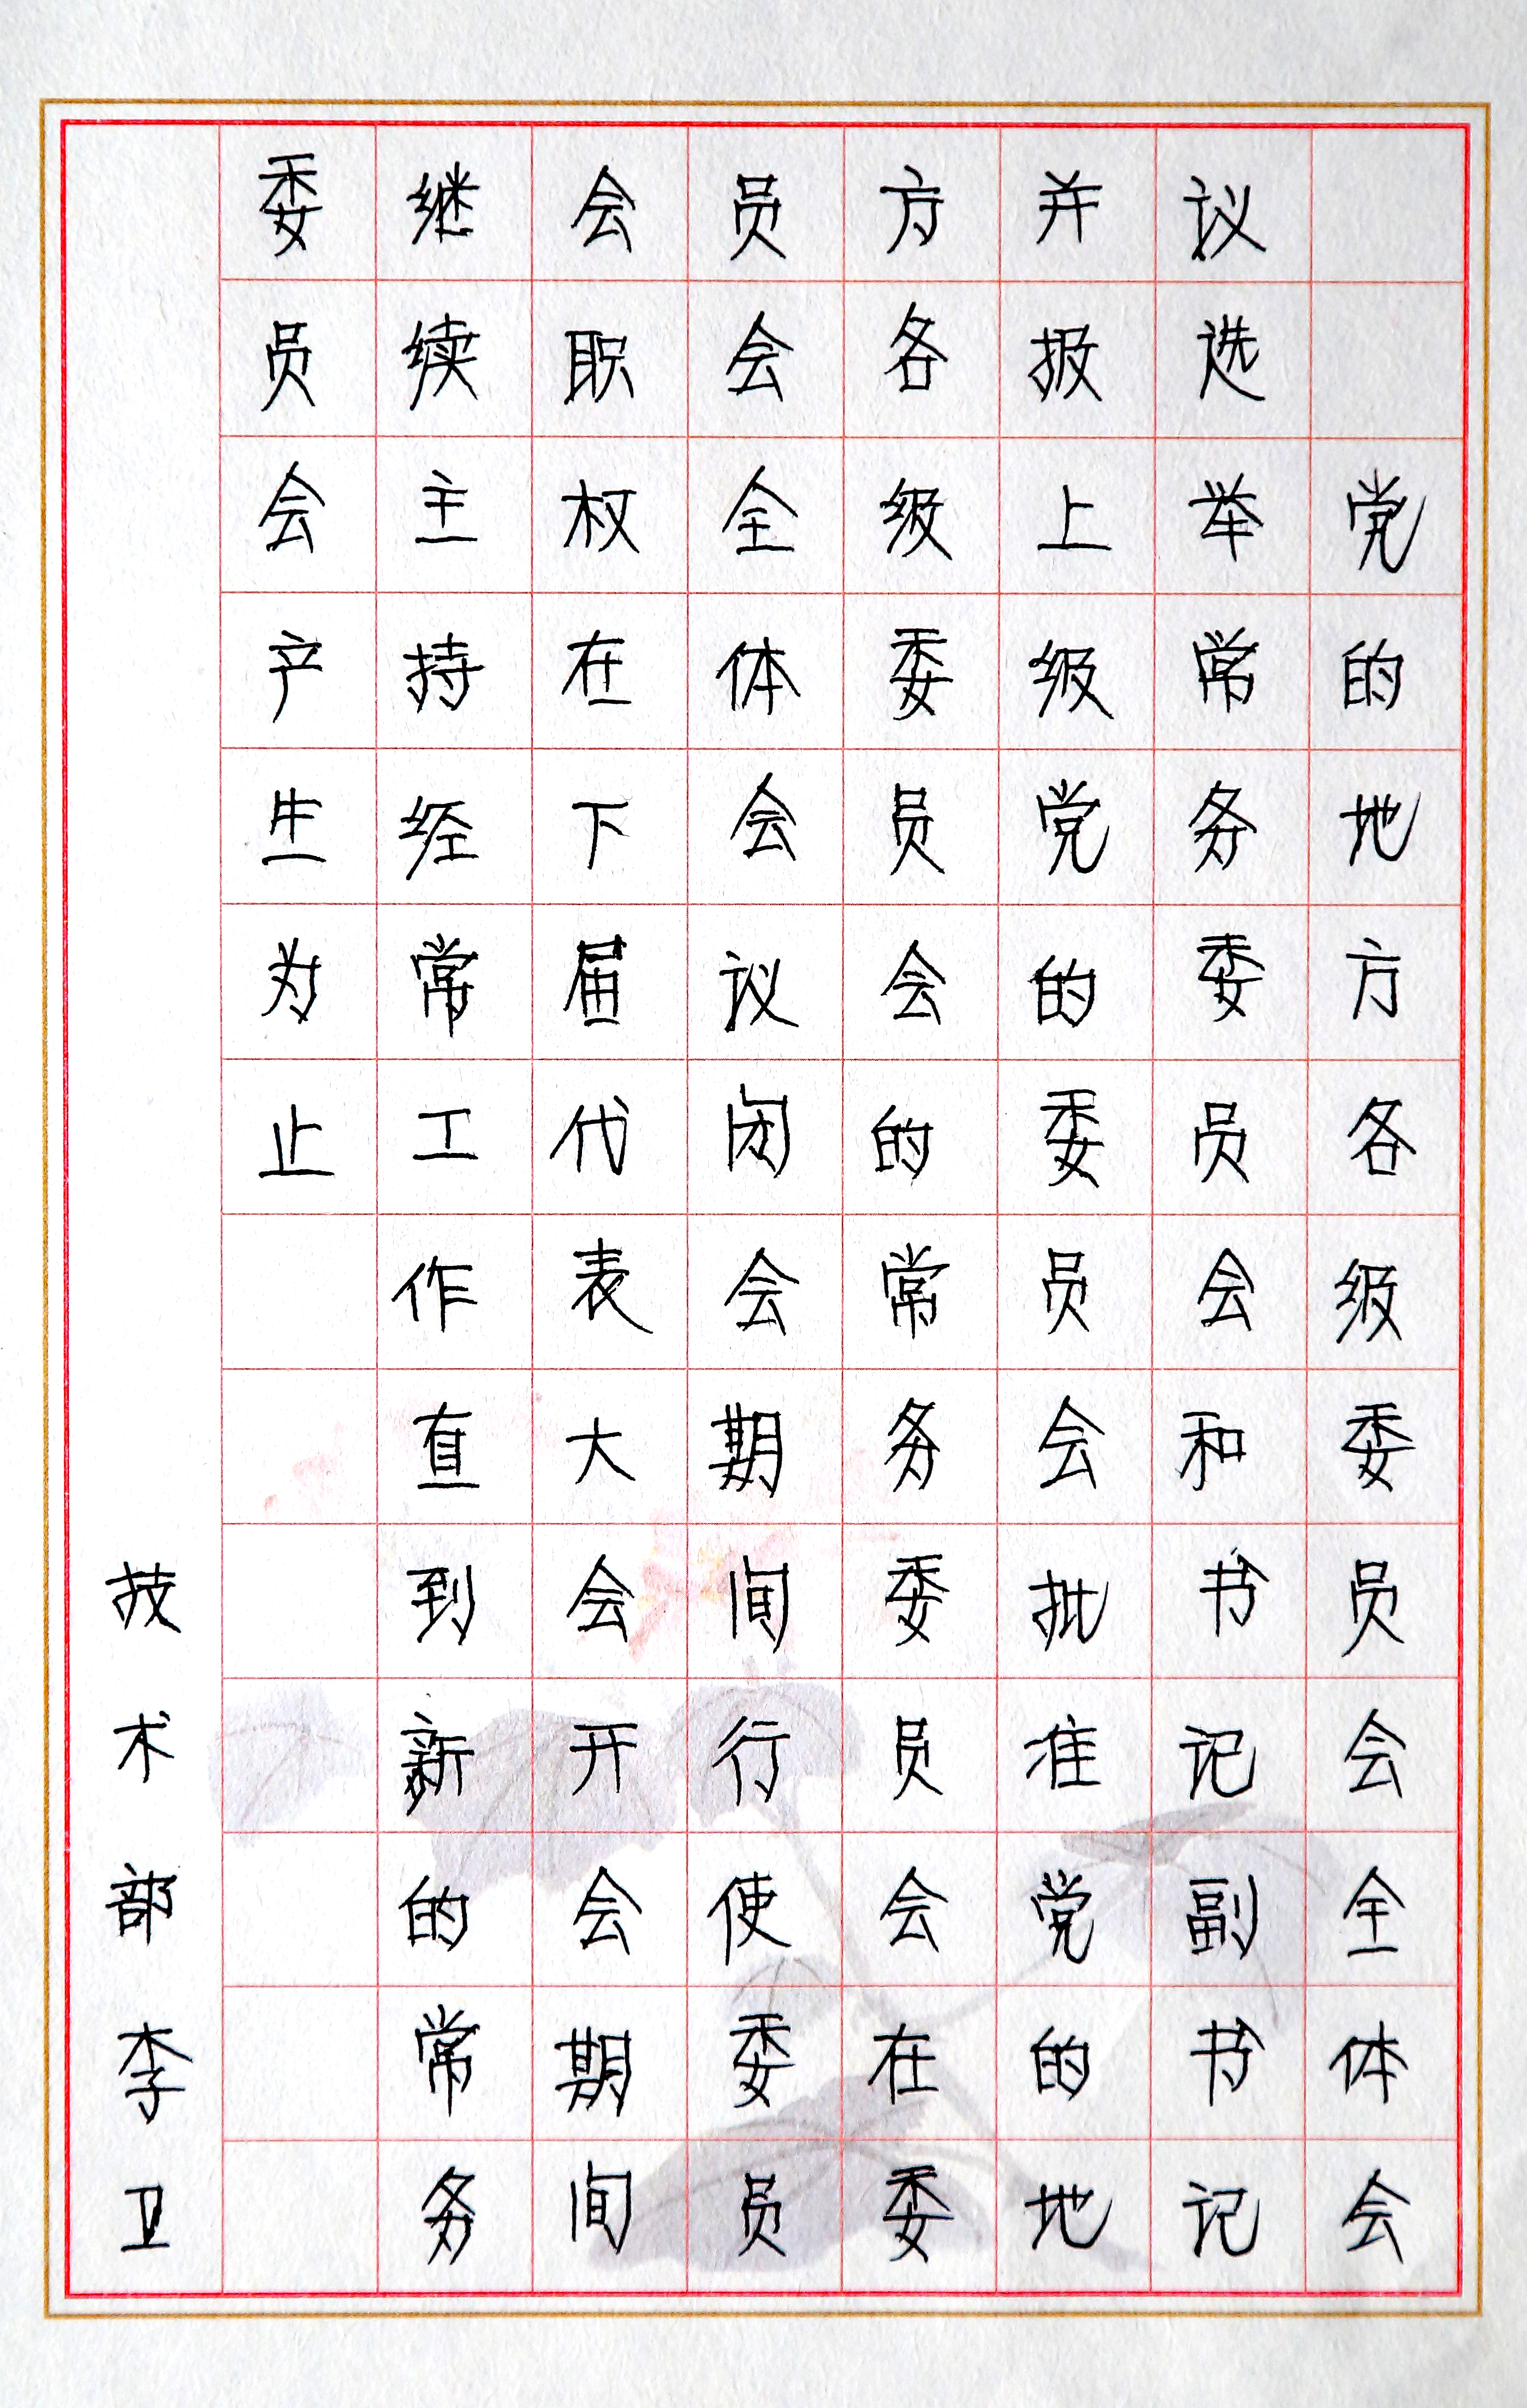 党的地方各级委员会全体会
议选举常务委员会和书记副书记
并报上级党的委员会批准党的地
方各级委员会的常务委员会在委
员会全体会议闭会期间行使委员
会职权在下届代表大会开会期间
继续主持经常工作直到新的常务
委员会产生为止
技术部李卫